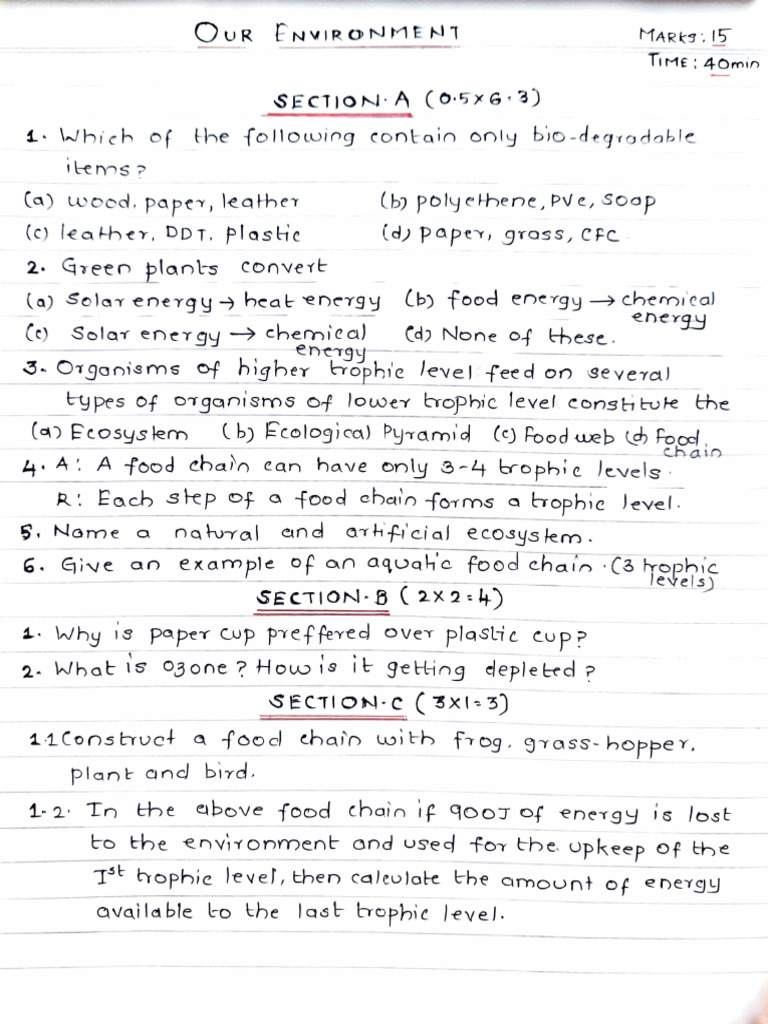 OUR ENVIRONMENT
MARKS: 15
TIME: 40min
SECTION-A (0.5x6=3)
1. Which of the following contain only bio-degradable
items?
(a) wood, paper, leather (b) polyethene, PVC, soap
(c) leather, DDT, plastic (d) paper, grass, CFC
2. Green plants convert
(a) Solar energy → heat energy (b) food energy → chemical
energy
(c) Solar energy → chemical (d) None of these.
energy
3. Organisms of higher trophic level feed on several
types of organisms of lower trophic level constitute the
(a) Ecosystem (b) Ecological Pyramid (c) Food web (d) food
chain
4. A: A food chain can have only 3-4 trophic levels.
R: Each step of a food chain forms a trophic level.
5. Name a natural and artificial ecosystem.
6. Give an example of an aquatic food chain. (3 trophic
levels)
SECTION-B (2x2=4)
1. Why is paper cup preffered over plastic cup?
2. What is ozone? How is it getting depleted?
SECTION-C (3x1=3)
1.1 Construct a food chain with frog, grass-hopper,
plant and bird.
1.2. In the above food chain if 900J of energy is lost
to the environment and used for the upkeep of the
Ist trophic level, then calculate the amount of energy
available to the last trophic level.